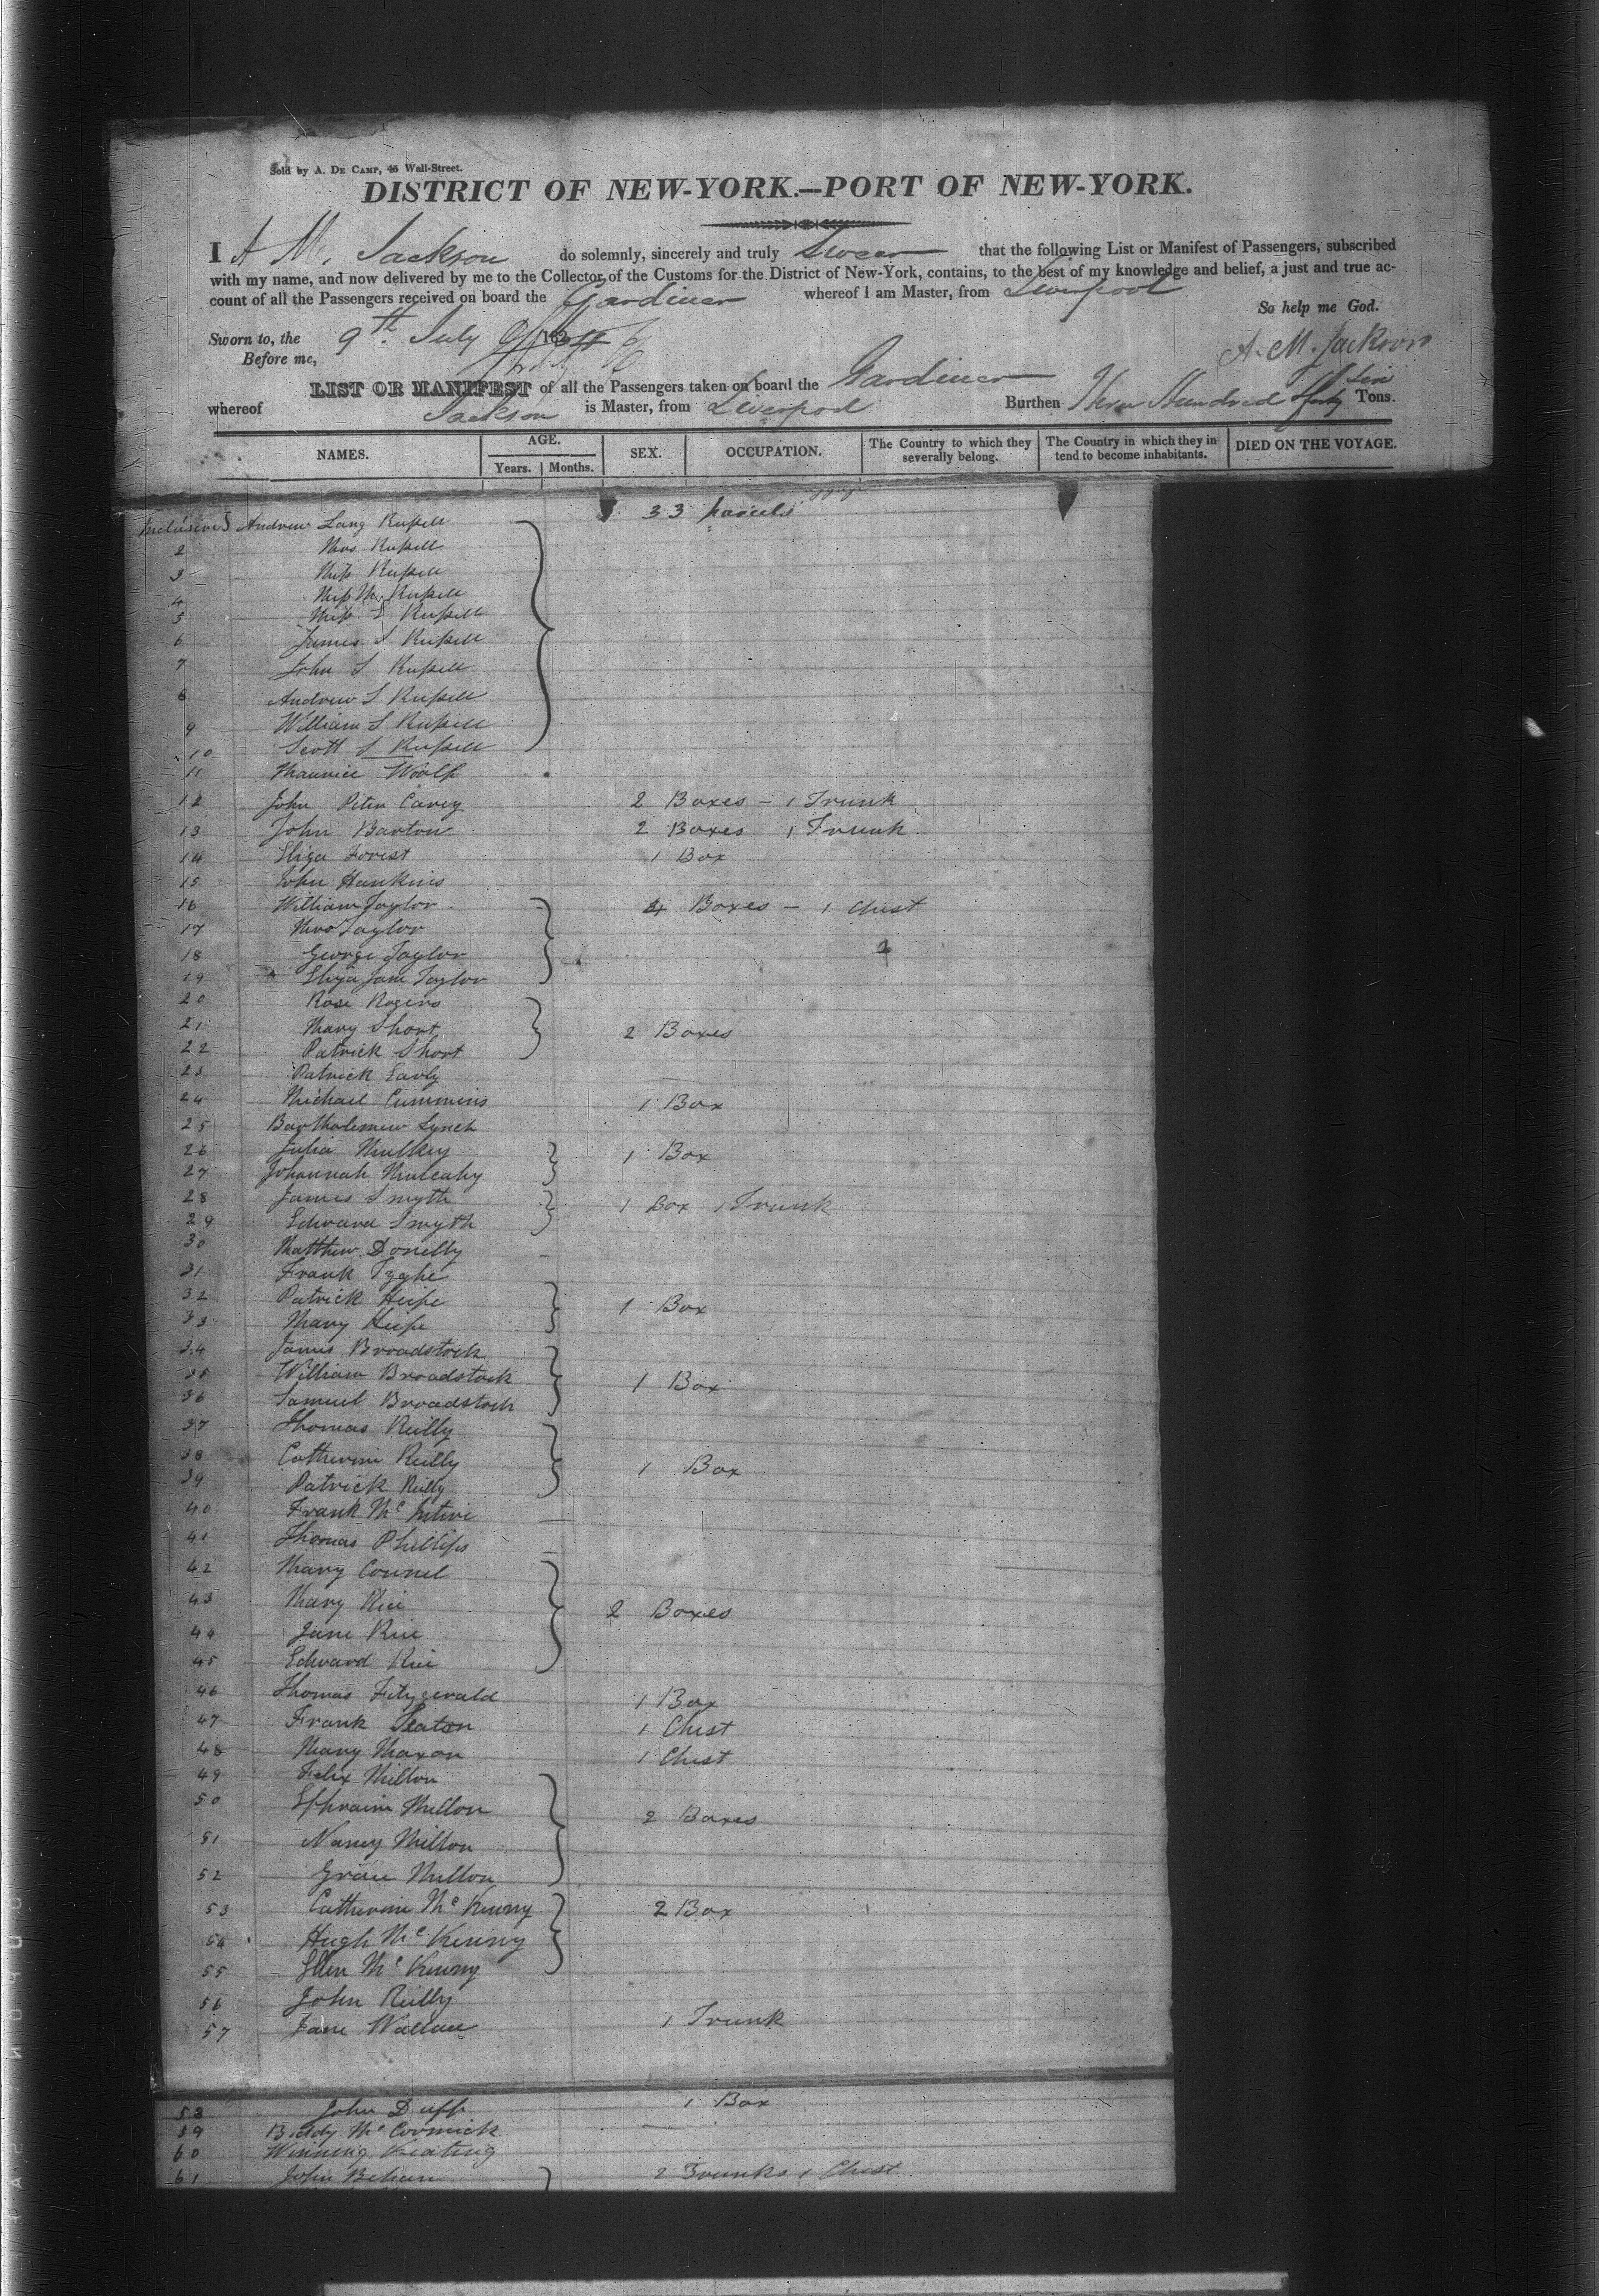 Sold by A. De Camp, 45 Wall-Street.
DISTRICT OF NEW-YORK.—PORT OF NEW-YORK.
I A M. Jackson do solemnly, sincerely and truly Swear that the following List or Manifest of Passengers, subscribed
with my name, and now delivered by me to the Collector of the Customs for the District of New-York, contains, to the best of my knowledge and belief, a just and true ac-
count of all the Passengers received on board the Gardiner whereof I am Master, from Liverpool
So help me God.
Sworn to, the 9th July
Before me, A. M. Jackson
LIST OR MANIFEST of all the Passengers taken on board the Gardiner
whereof Jackson is Master, from Liverpool Burthen Three Hundred Tons.
NAMES. AGE. Years. Months. SEX. OCCUPATION. The Country to which they severally belong. The Country in which they in tend to become inhabitants. DIED ON THE VOYAGE.
33 parcels
Inclusive Andrew Lang Russell
2 Mrs Russell
3 Miss Russell
4 Miss M Russell
5 Miss Russell
6 James S Russell
7 John S Russell
8 Andrew S Russell
9 William S Russell
10 Scott S Russell
11 Maurice Woolf
12 John Peter Carey 2 Boxes - 1 Trunk
13 John Barton 2 Boxes 1 Trunk
14 Eliza Forest 1 Box
15 John Hankins
16 William Taylor 4 Boxes - 1 Chest
17 Mrs Taylor
18 George Taylor
19 Eliza Jane Taylor
20 Rose Rogers
21 Mary Short 2 Boxes
22 Patrick Short
23 Patrick Early
24 Michael Cummins 1 Box
25 Bartholemew Lynch
26 Julia 1 Box
27 Johannah Mulcahy
28 James Smyth 1 Box 1 Trunk
29 Edward Smyth
30 Matthew Donelly
31 Frank Tyghe
32 Patrick 1 Box
33 Mary
34 James Broadstock
35 William Broadstock 1 Box
36 Samuel Broadstock
37 Thomas Reilly
38 Catherine Reilly 1 Box
39 Patrick Reilly
40 Frank Mc
41 Thomas Phillips
42 Mary Connel
43 Mary Rice 2 Boxes
44 Jane Rice
45 Edward Rice
46 Thomas Fitzgerald 1 Box
47 Frank Seaton 1 Chest
48 Mary Maxon 1 Chest
49 Felix Mellon
50 Ephraim Mellon 2 Boxes
51 Nancy Mellon
52 Grace Mellon
53 Catherine Mc Kenny 2 Box
54 Hugh Mc Kenny
55 Ellen Mc Kenny
56 John Reilly
57 Jane Wallace 1 Trunk
58 John Duff 1 Box
59 Biddy Mc Cormick
60 Keating
61 John Behan 2 Trunks 1 Chest